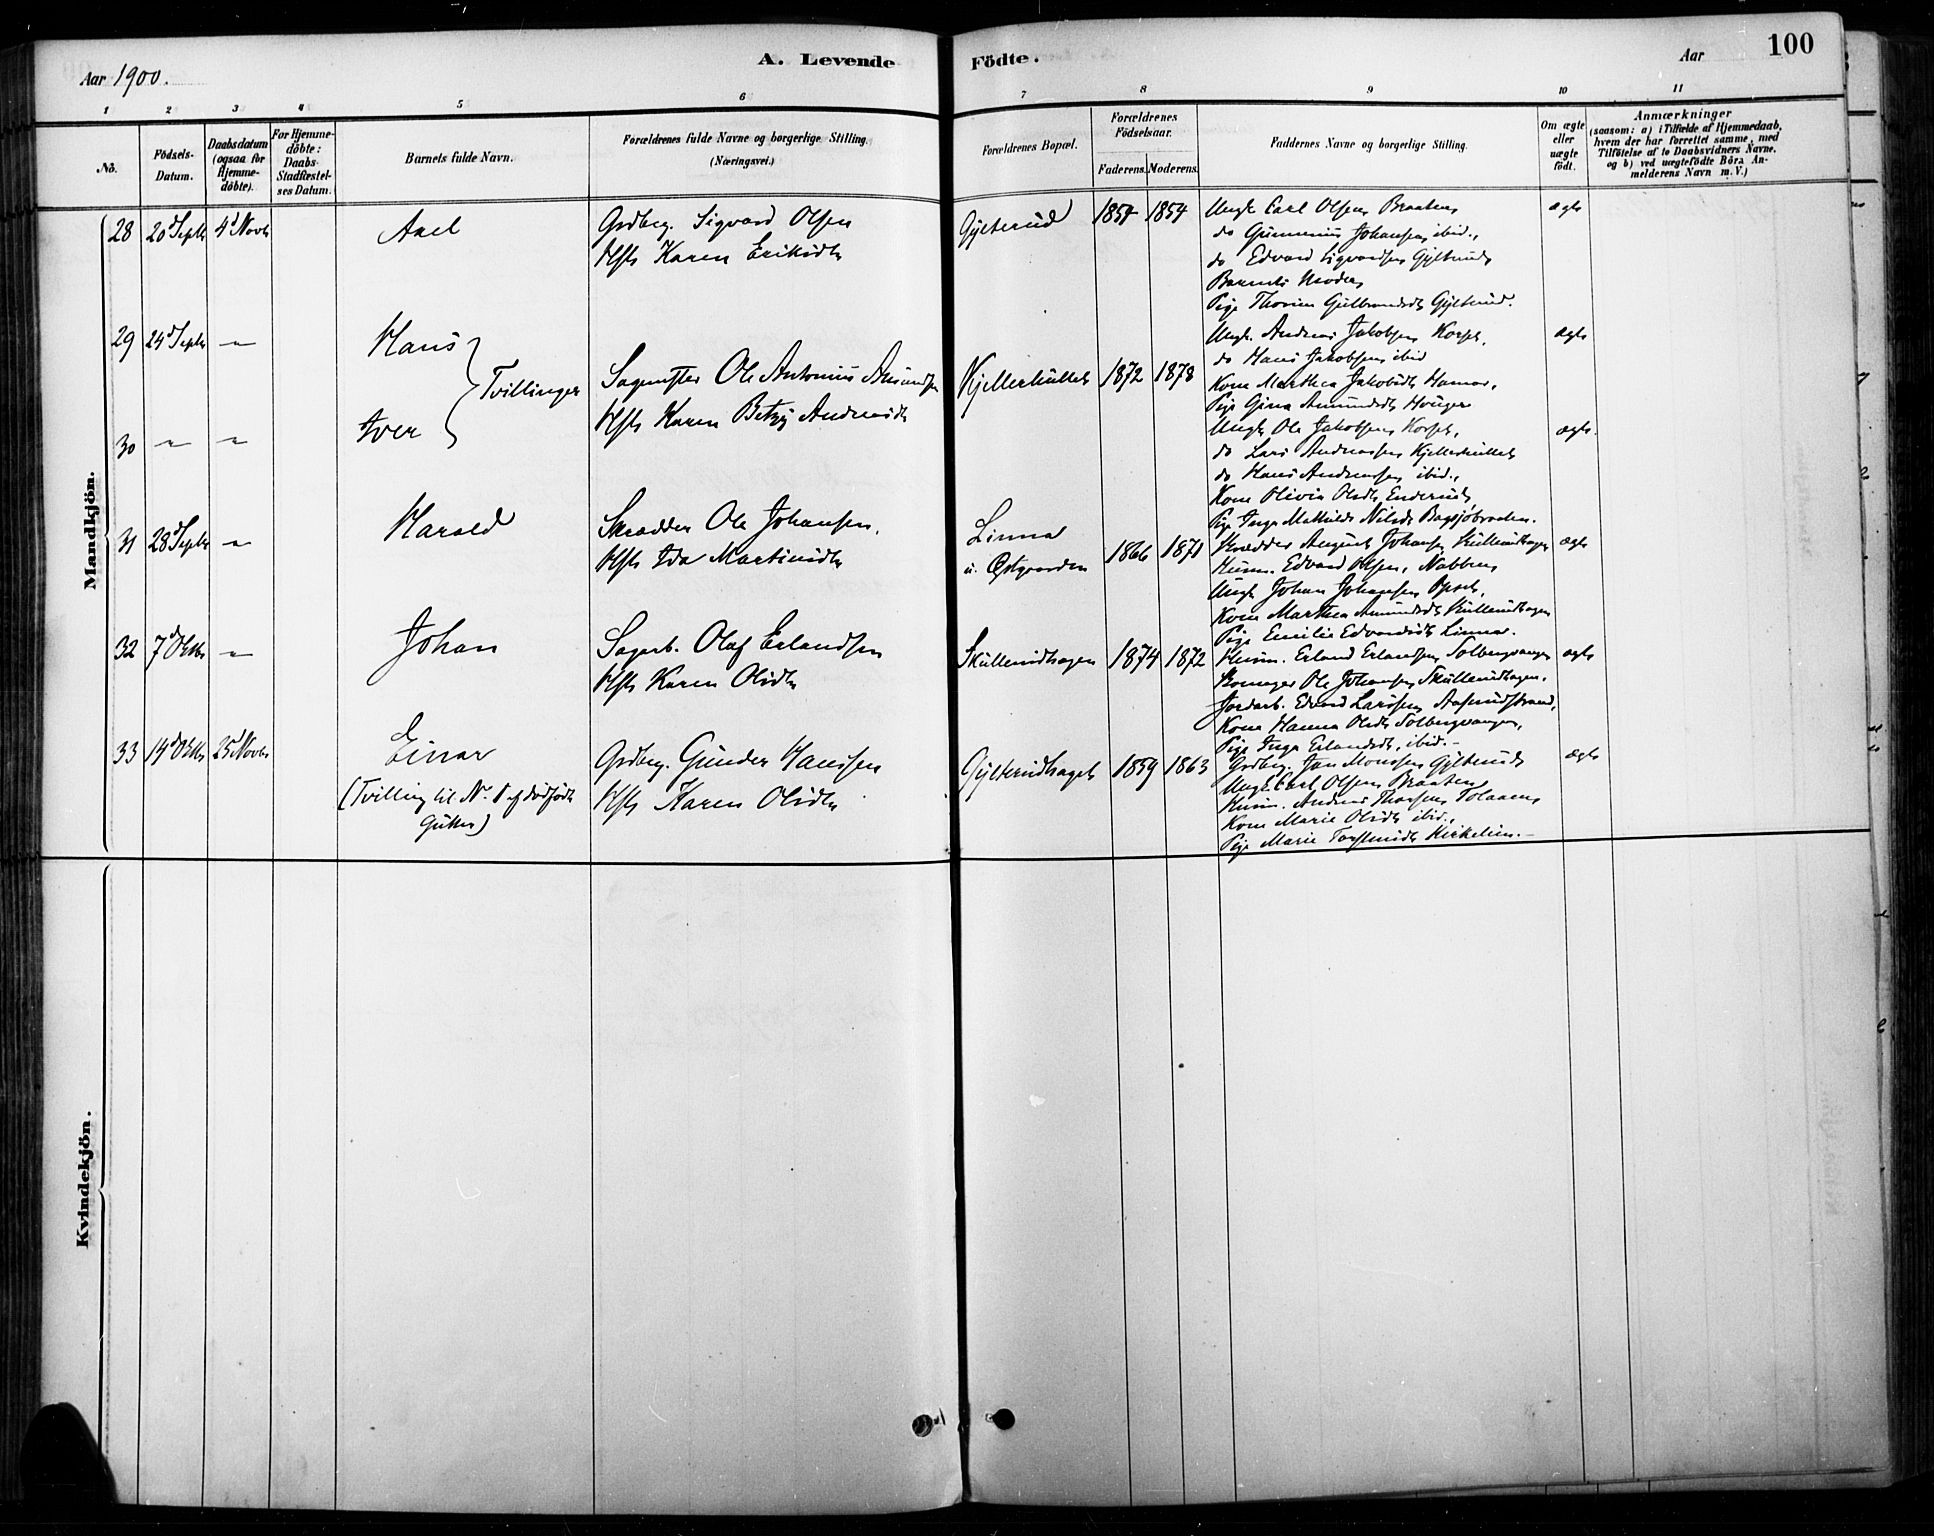 A. Levende Födte.
Aar 1900.
Aar 100
1 2 3 4 5 6 7 8 9 10 11
No.
Födsels-Datum.
Daabsdatum (ogsaa for Hjemme-döbte).
For Hjemme-döbte: Daabs-Stadfæstel-ses Datum.
Barnets fulde Navn.
Forældrenes fulde Navne og borgerlige Stilling. (Næringsvei.)
Forældrenes Bopæl.
Forældrenes Födselsaar.
Faderens. Moderens.
Faddernes Navne og borgerlige Stilling.
Om ægte eller uægte födt.
Anmærkninger
(saasom: a) i Tilfælde af Hjemmedaab, hvem der har forrettet samme, med Tilföielse af to Daabsvidners Navne, og b) ved uægtefödte Börn Anmelderens Navn m. V.)
Mandkjön.
28 20d Septbr 4d Novbr Axel
Grdbrg. Sigvard Olsen
Hst Karen Eriksdtr
Gylterud 1854 1854
Ungk. Carl Olsen Braaten
do Gunnerius Johansen, ibid.,
do Edvard Sigvardsen Gylterud
Barnets Moder,
Pige Thorine Gulbrandsdt Gylterud.
ægte
29 24d Septbr " Hans
Tvillinger
30 " " Iver
Sagmster Ole Antonius Amundsen
Hst Karen Betzy Andreasdt
Kjellerhullet 1872 1878
Ungk. Andreas Jakobsen Korset,
do Hans Jakobsen, ibid
Kone Marthea Jakobsdt Hamar,
Pige Gina Amundsdt Houger
ægte
Ungk Ole Jakobsen Korset,
do Lars Andreassen Kjellerhullet
do Hans Andreassen, ibid.,
Kone Olivia Olsdt Enderud
Pige Inga Mathilde Nilsdt Bagsjöbraaten.
ægte.
31 28d Septbr " Harald
Skrædder Ole Johansen,
Hst Ida Martinsdtr
Linna
u. Østgaarden 1866 1871
Skrædder August Johansen Skullerudhagen
Husm. Edvard Olsen, Nabben,
Ungk Johan Johansen Opset,
Kone Marthea Amundsdt Skullerudhagen
Pige Emilie Edvardsdt Linna.
ægte
32 7d Oktbr " Johan
Sagarb. Olaf Erlandsen
Hst Karen Olsdtr
Skullerudhagen 1874 1872
Husm. Erland Erlandsen Solbergvangen
Skomager Ole Johansen Skullerudhagen,
Jordarb. Edvard Larssen, Aaserudstrand,
Kone Hanna Olsdt Solbergvangen,
Pige Inga Erlandsdt, ibid.
ægte
33 14d Oktbr 25d Novbr Einar
(Tvilling til No. 1 af dödfödte Gutter)
Grdbrg. Gunder Hanssen
Hst Karen Olsdtr
Gylterudhaget 1859 1863
Grdbrg. Jan Monssen Gylterud
Ungk. Carl Olsen Braaten
Husm. Andreas Thorsen Tolaaen,
Kone Marie Olsdt ibid.,
Pige Marie Torstensdt Kirkelien.
ægte
Kvindekjön.